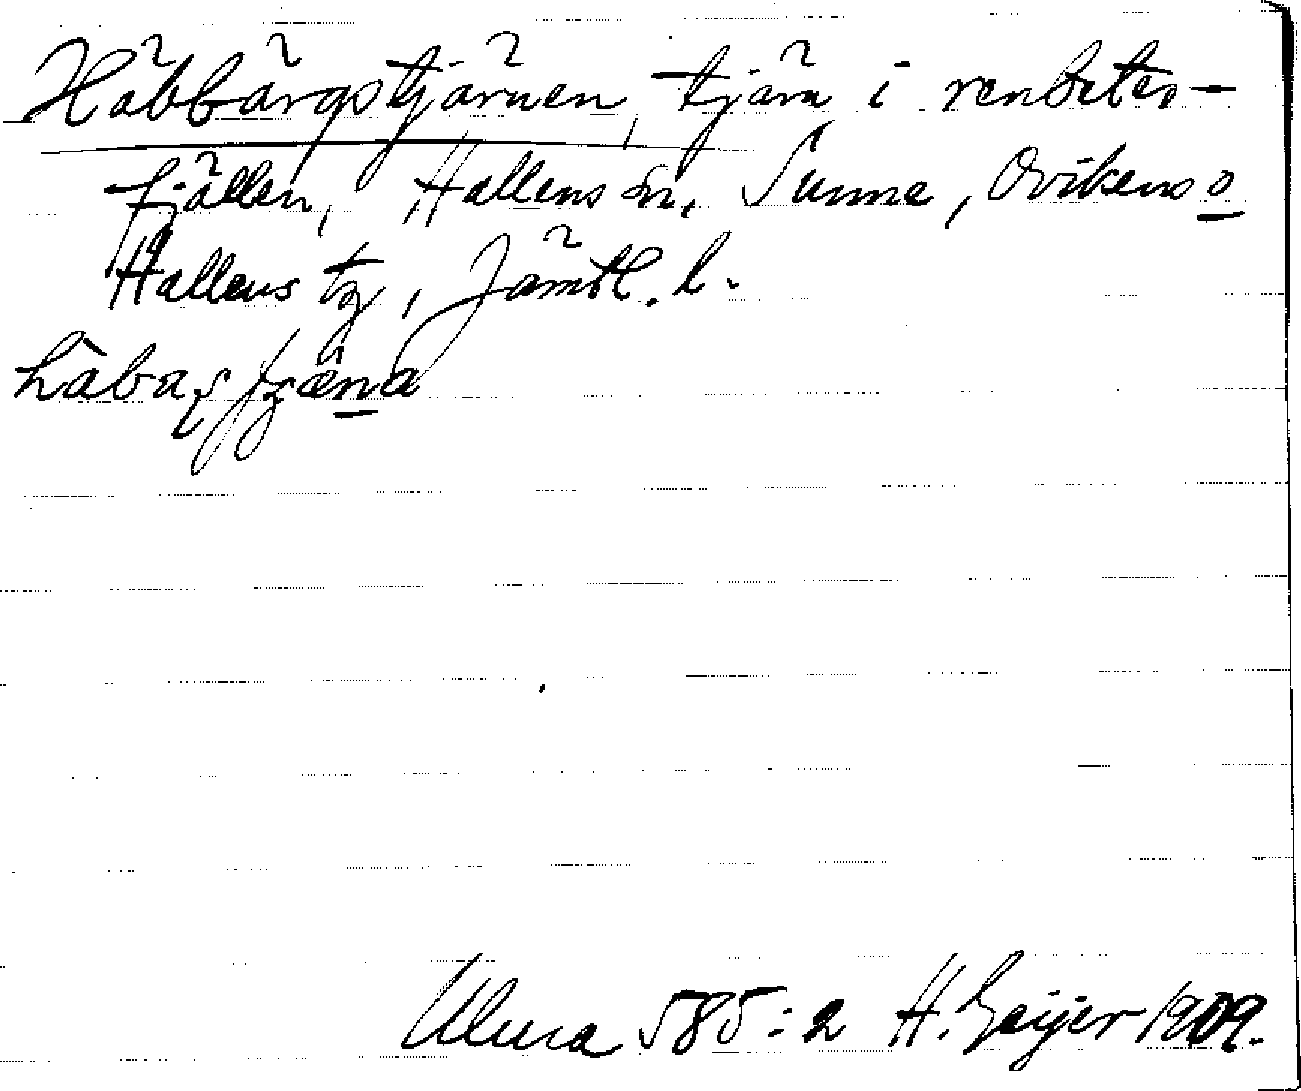 Häbbärgstjärnen, tjärn i renbetes-
fjällen, Hallens sn, Sunne, Ovikens o
Hallens tg, Jämtl. l.
Ulma 585:2 H. Geijer 1909.